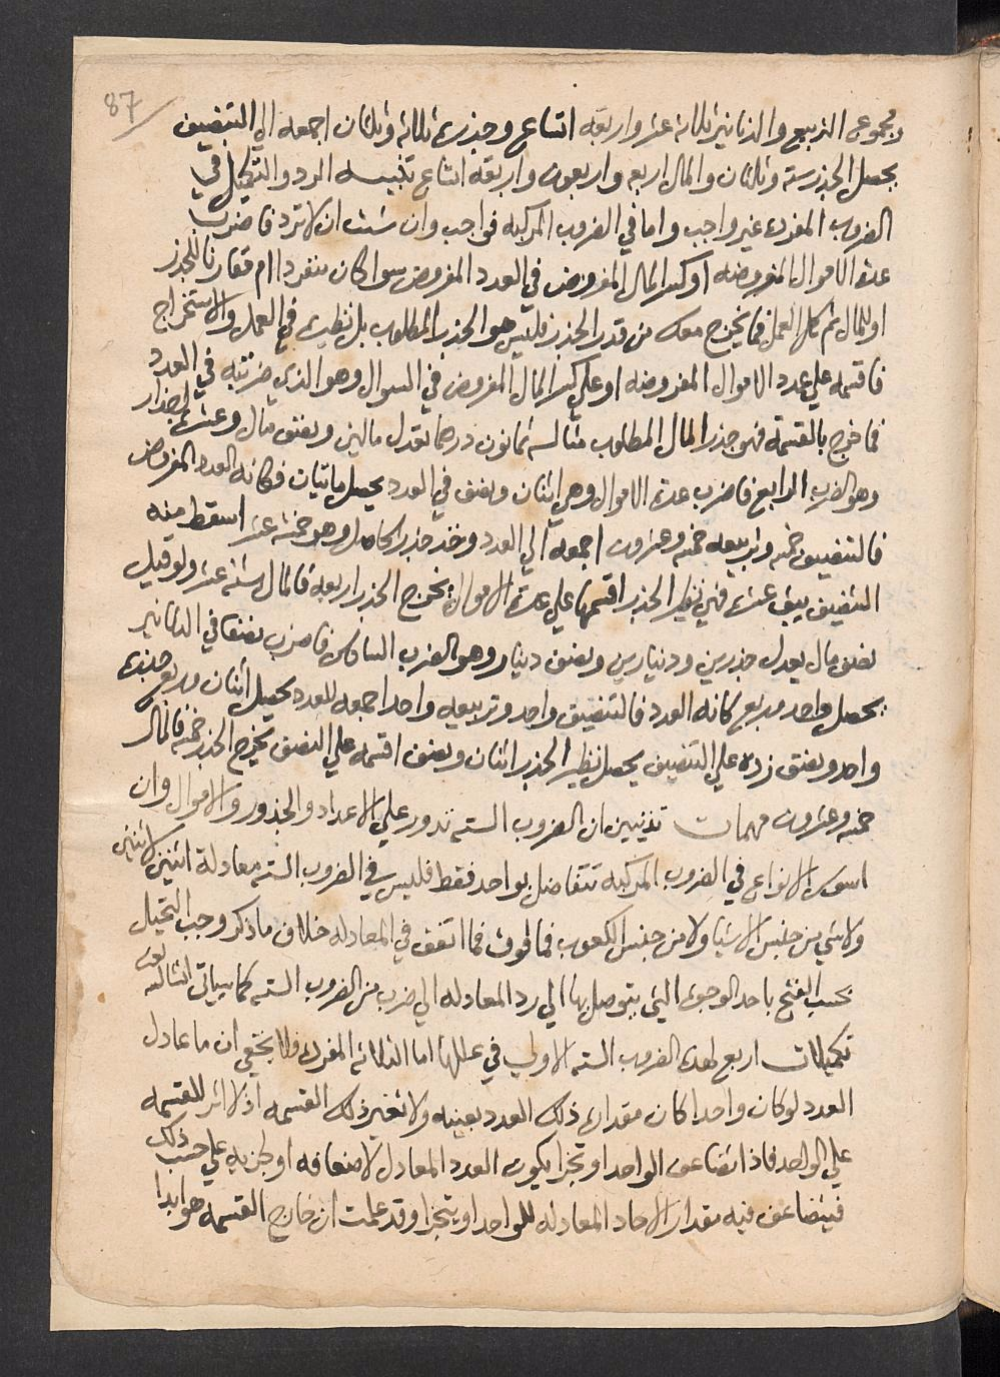 87
ومجموع التربيع والدنانير ثلاثة عشر واربعة اتساع وجذره ثلاثة وثلثان اجمعه الي التنصيف
يحصل الجذر ستة وثلثان والمال اربعه واربعون واربعة اتساع تنبيه الرد والتكميل في
الضروب المفرده غير واجب واما في الضروب المركبه فواجب وان شئت ان لا ترد فاضرب
عدة الاموال المفروضه او كسر المال المفروض في العدد المفروض سوا كان منفردا ام مقارنا للجذر
او للمال ثم كمل العمل فما يخرج معك من قدر الجذر فليس هو الجذر المطلوب بل نظيره في العمل والاستخراج
فاقسمه علي عدد الاموال المفروضه او علي كسر المال المفروض في السوال وهو الذي ضربته في العدد
فما خرج بالقسمة فهو جذر المال المطلوب مثاله ثمانون درهما تعدل مالين ونصف مال وعشرة اجذار
وهو الضرب الرابع فاضرب عدة الاموال وهي اثنان ونصف في العدد يحصل مائتان فكانه العدد المفروض
فالتنصيف خمسه وتربيعه خمسه وعشرون اجمعه الي العدد وخذ جذر الحاصل وهو خمسة عشر اسقط منه
التنصيف يبق عشرة فهي نظير الجذر اقسمها علي عدة الاموال يخرج الجذر اربعة فالمال ستة عشر ولو قيل
نصف مال يعدل جذرين ودينارين ونصف دينار وهو الضرب السادس فاضرب نصفا في الدنانير
يحصل واحد وربع كانه العدد فالتنصيف واحد وتربيعه واحد اجمعه للعدد يحصل اثنان وربع جذره
واحد ونصف زده علي التنصيف يحصل نظير الجذر اثنان ونصف اقسمه علي النصف يخرج الجذر خمسه فالمال
خمسه وعشرون مهمات تبين ان الضروب السته تدور علي الاعداد والجذور والاموال وان
اسوس الانواع في الضروب المركبه تتفاضل بواحد فقط فليس في الضروب السته معادلة اثنين لاثنين
ولا شي من جنس الاشيا ولا من جنس الكعوب فما فوق فما اتفق في المعادله خلاف ما ذكر وجب التحيل
بحسب الفتح باحد الوجوه التي يتوصل بها الي رد المعادله الي ضرب من الضروب السته كما سياتي
تكميلات اربع لهذه الضروب السته الاولي في عللها اما الثلاثه المفرده فلا يخفي ان ما عادل
العدد لو كان واحدا كان مقداره ذلك العدد بعينه ولا تغير ذلك القسمه اذ لا اثر للقسمه
علي الواحد فاذا تضاعف الواحد او تجزا يكون العدد المعادل لاضعافه او لجزيه علي حسب ذلك
فيتضاعف فيه مقدار الاحاد المعادله للواحد او يتجزا وقد علمت ان خارج القسمة هو ابدا